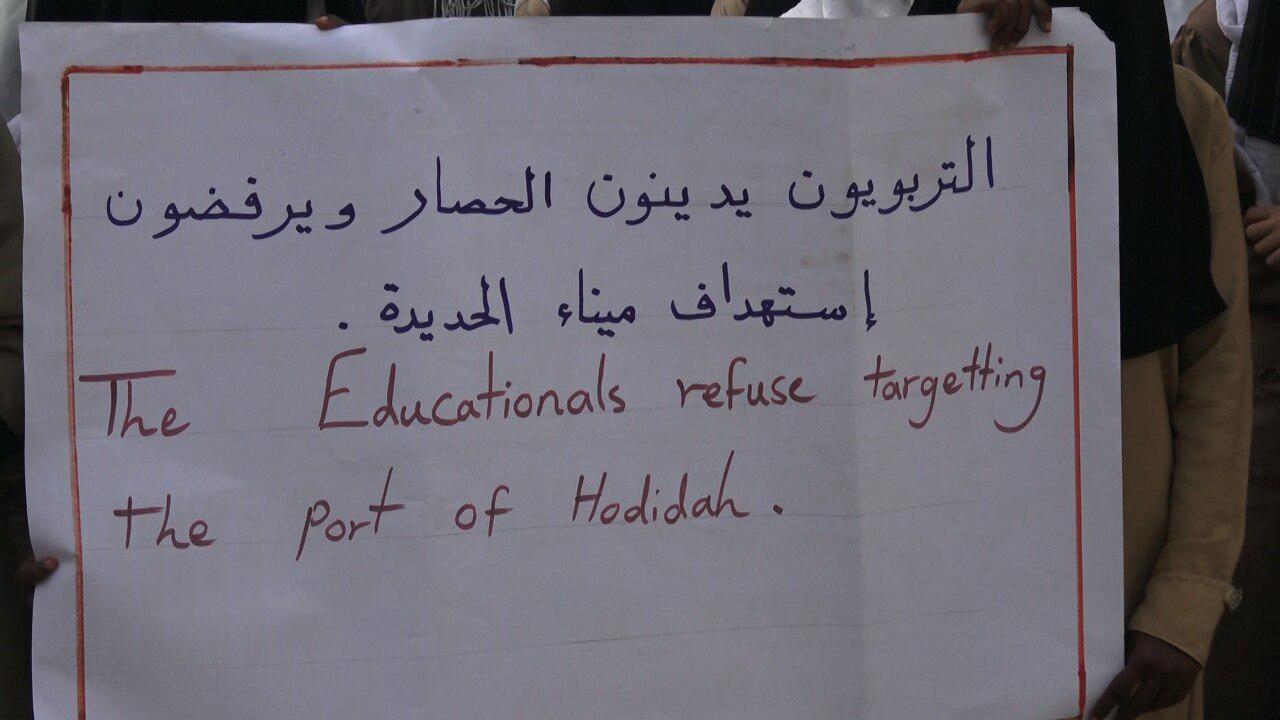 التربويون يدينون الحصار ويرفضون
إستهداف ميناء الحديدة .
The Educationals refuse targetting
the port of Hodidah.